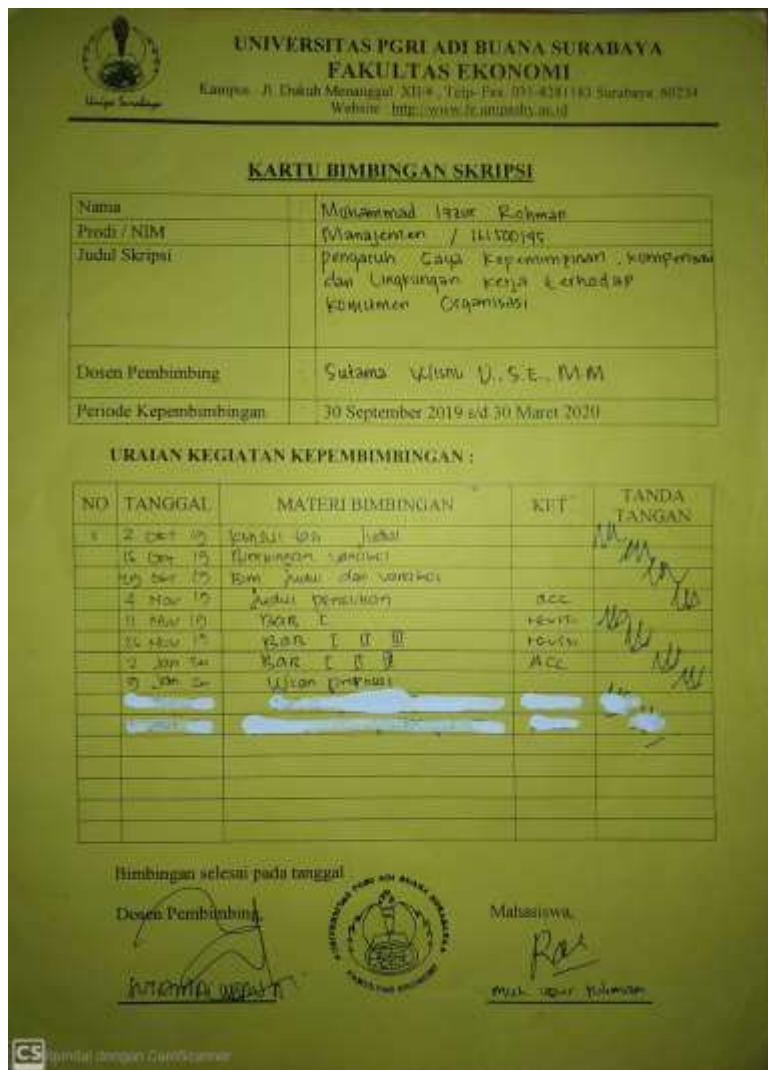 UNIVERSITAS PGRI ADI BUANA SURABAYA
FAKULTAS EKONOMI
Kampus : Jl. Dukuh Menanggal XII/4 , Telp- Fax. 031-8281183 Surabaya 60234
Website : http://www.fe.unipasby.ac.id
Unipa Surabaya
KARTU BIMBINGAN SKRIPSI
Nama : Muhammad Izzur Rohman
Prodi / NIM : Manajemen / 161500195
Judul Skripsi : pengaruh Gaya kepemimpinan , kompensasi
dan Lingkungan kerja terhadap
komitmen Organisasi
Dosen Pembimbing : Sutama Wisnu D., S.E., M.M
Periode Kepembimbingan : 30 September 2019 s/d 30 Maret 2020
URAIAN KEGIATAN KEPEMBIMBINGAN :
NO TANGGAL MATERI BIMBINGAN KET TANDA TANGAN
1 2 OKT 19 judul
15 19 Bimbingan variabel
19 Bim judul dan variabel
4 Nov 19 judul penelitian acc
11 Nov 19 BAB I revisi
26 Nov 19 BAB I II III revisi
2 Jan 20 BAB I II III ACC
9 Jan 20 Ujian proposal
Bimbingan selesai pada tanggal
Dosen Pembimbing, Mahasiswa,
UNIVERSITAS PGRI ADI BUANA SURABAYA
FAKULTAS EKONOMI
Moh Izzur Rohman
CS Dipindai dengan CamScanner